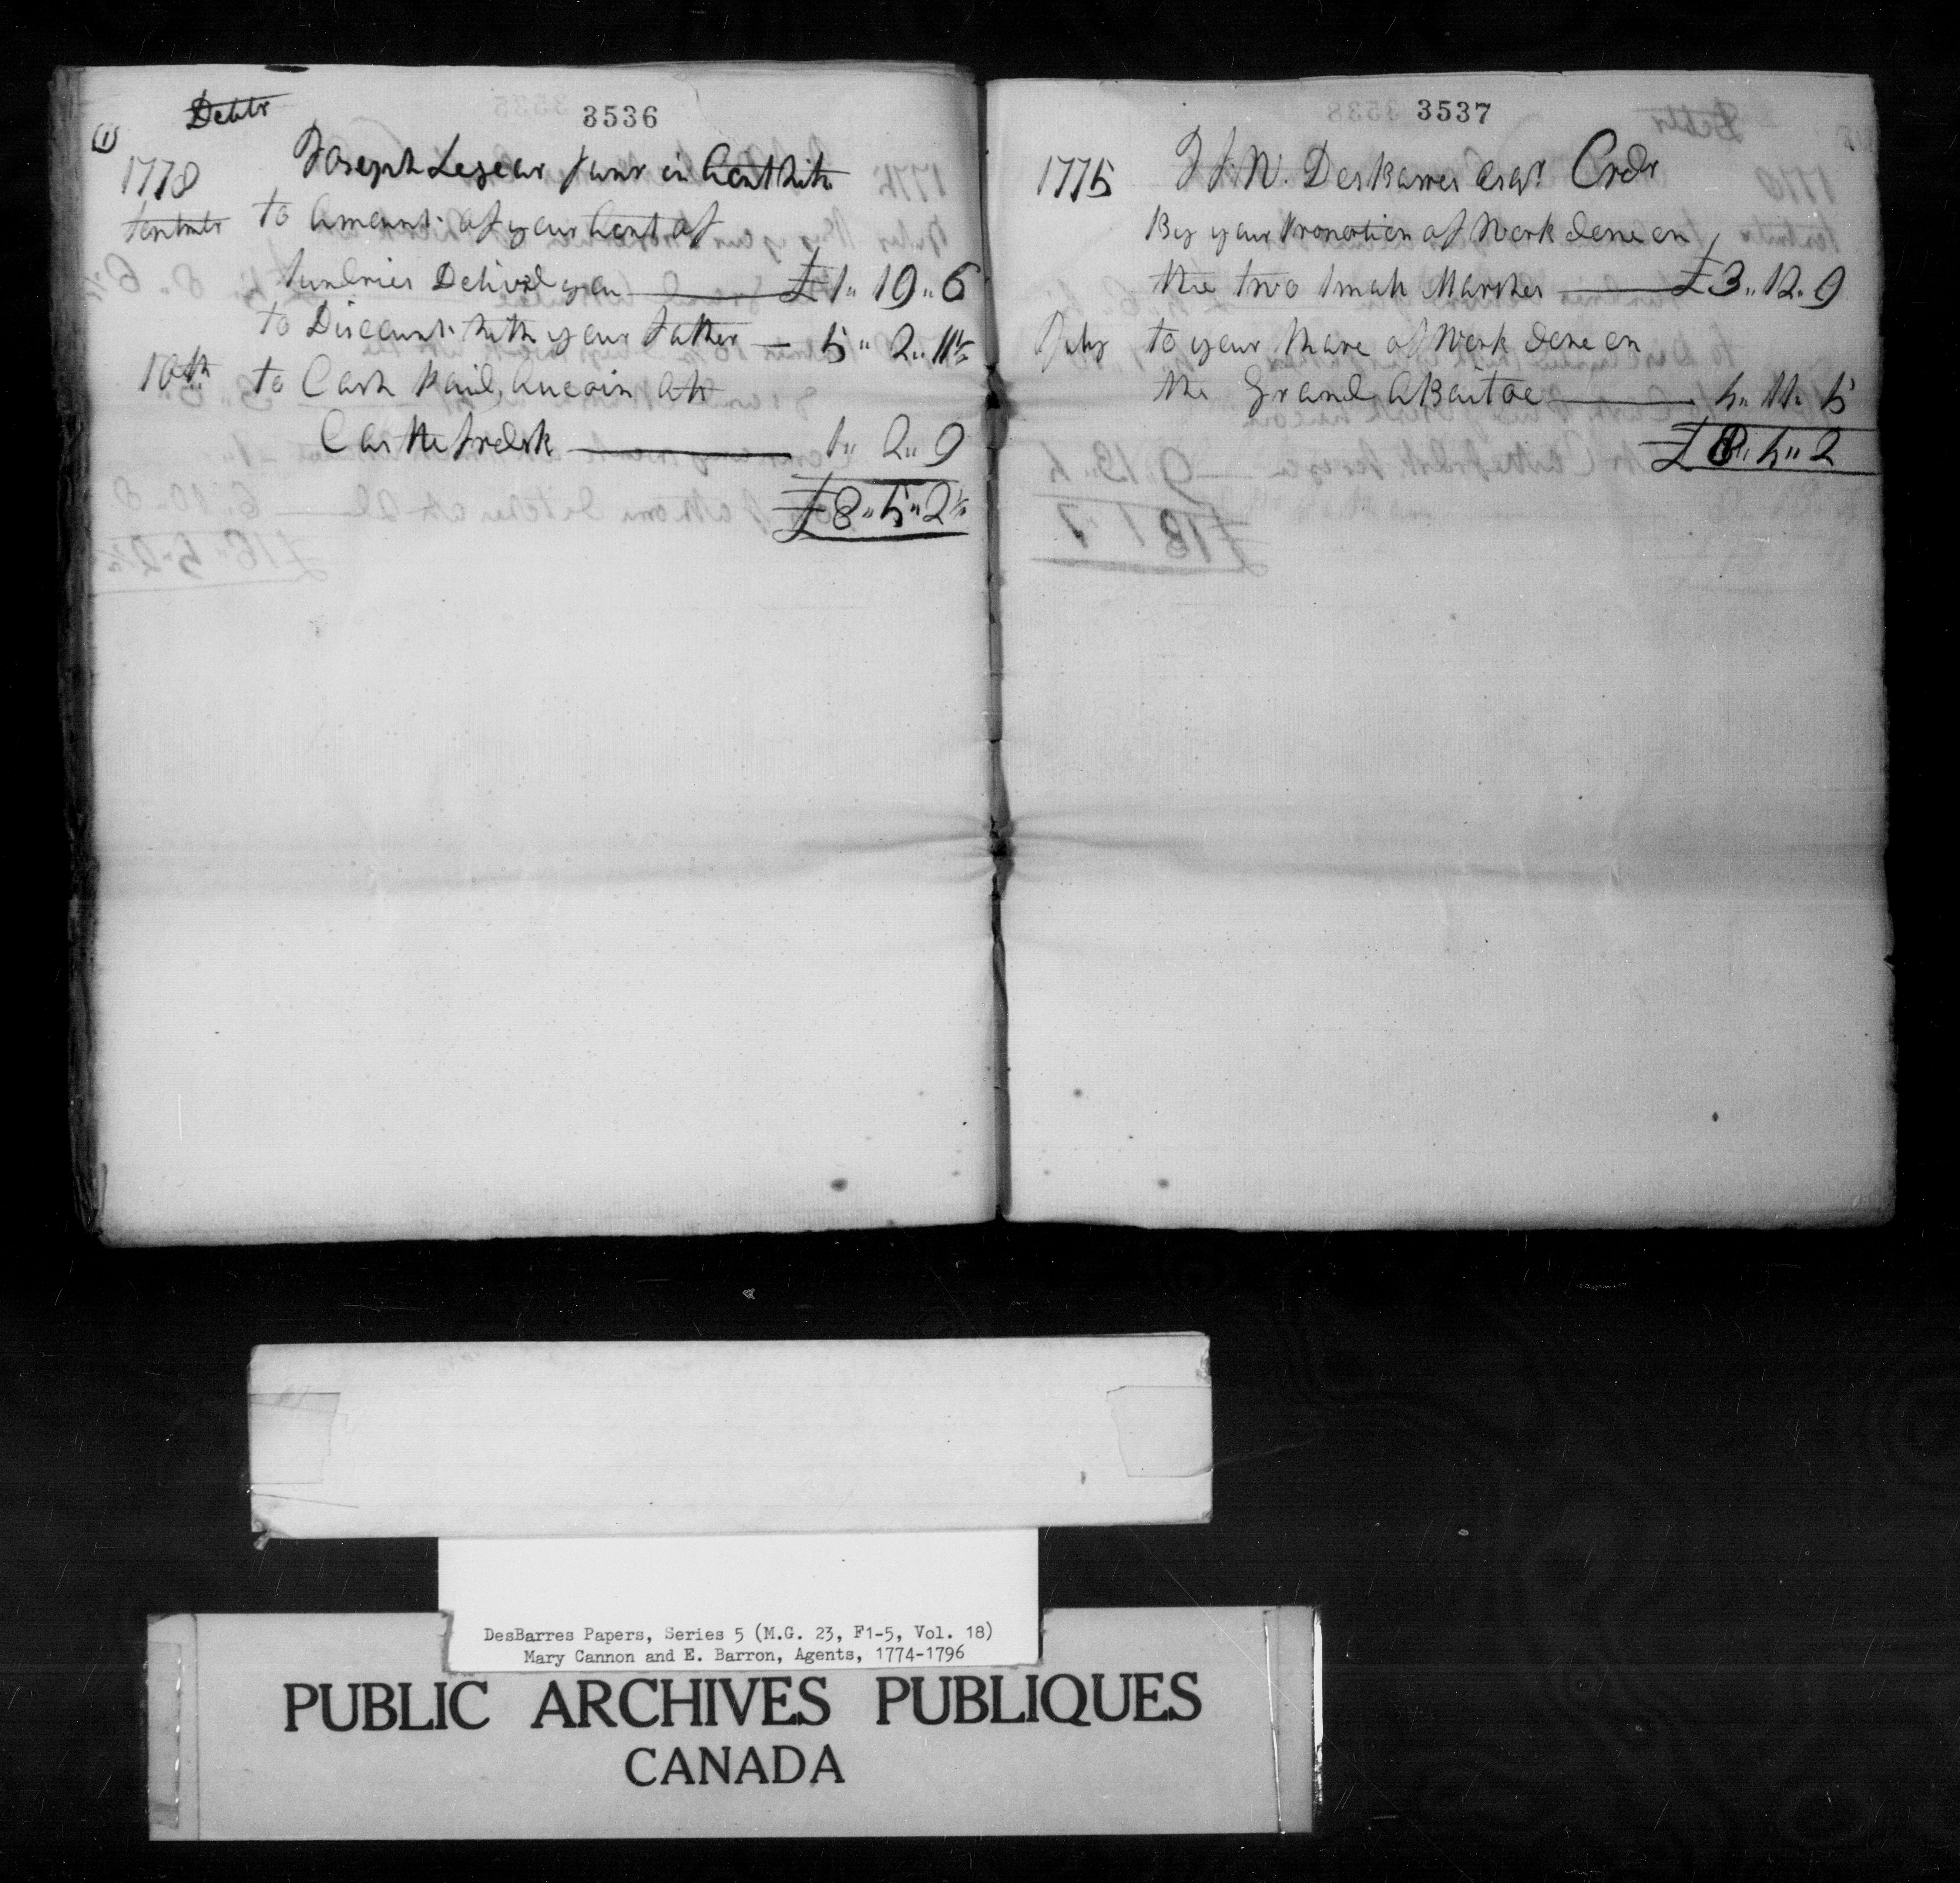 Debtr
3536
(1)
1778 Joseph Legear Junr in Acct with
Septembr to Amount of your Acct of
Sundries Deliverd you £1„ 19„ 6
to Discount with your father — 5„ 2„ 11½
10th to Cash paid Aucoin att
Casttefredrk 1„ 2„ 9
£8„ 5„ 2½
3537
1775 J F W. DesBarres Esqr. Credr
By your Proportion of Work done on
the two Small Marshes £3„ 12„ 9
July to your Share of Work done on
the Grand Abaitoe 4„ 11„ 5
£8„ 4„ 2
DesBarres Papers, Series 5 (M.G. 23, F1-5, Vol. 18)
Mary Cannon and E. Barron, Agents, 1774-1796
PUBLIC ARCHIVES PUBLIQUES
CANADA